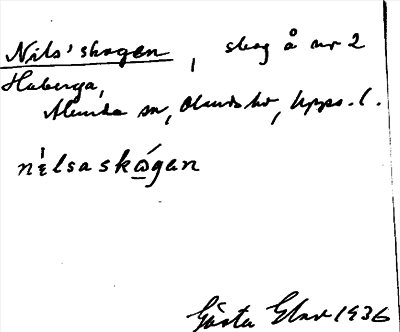 Nils'skogen, skog å nr 2
Huberga,
Alunda sn, Olands hd, Upps. l.
nilsaskωgen
Gösta Elav 1936